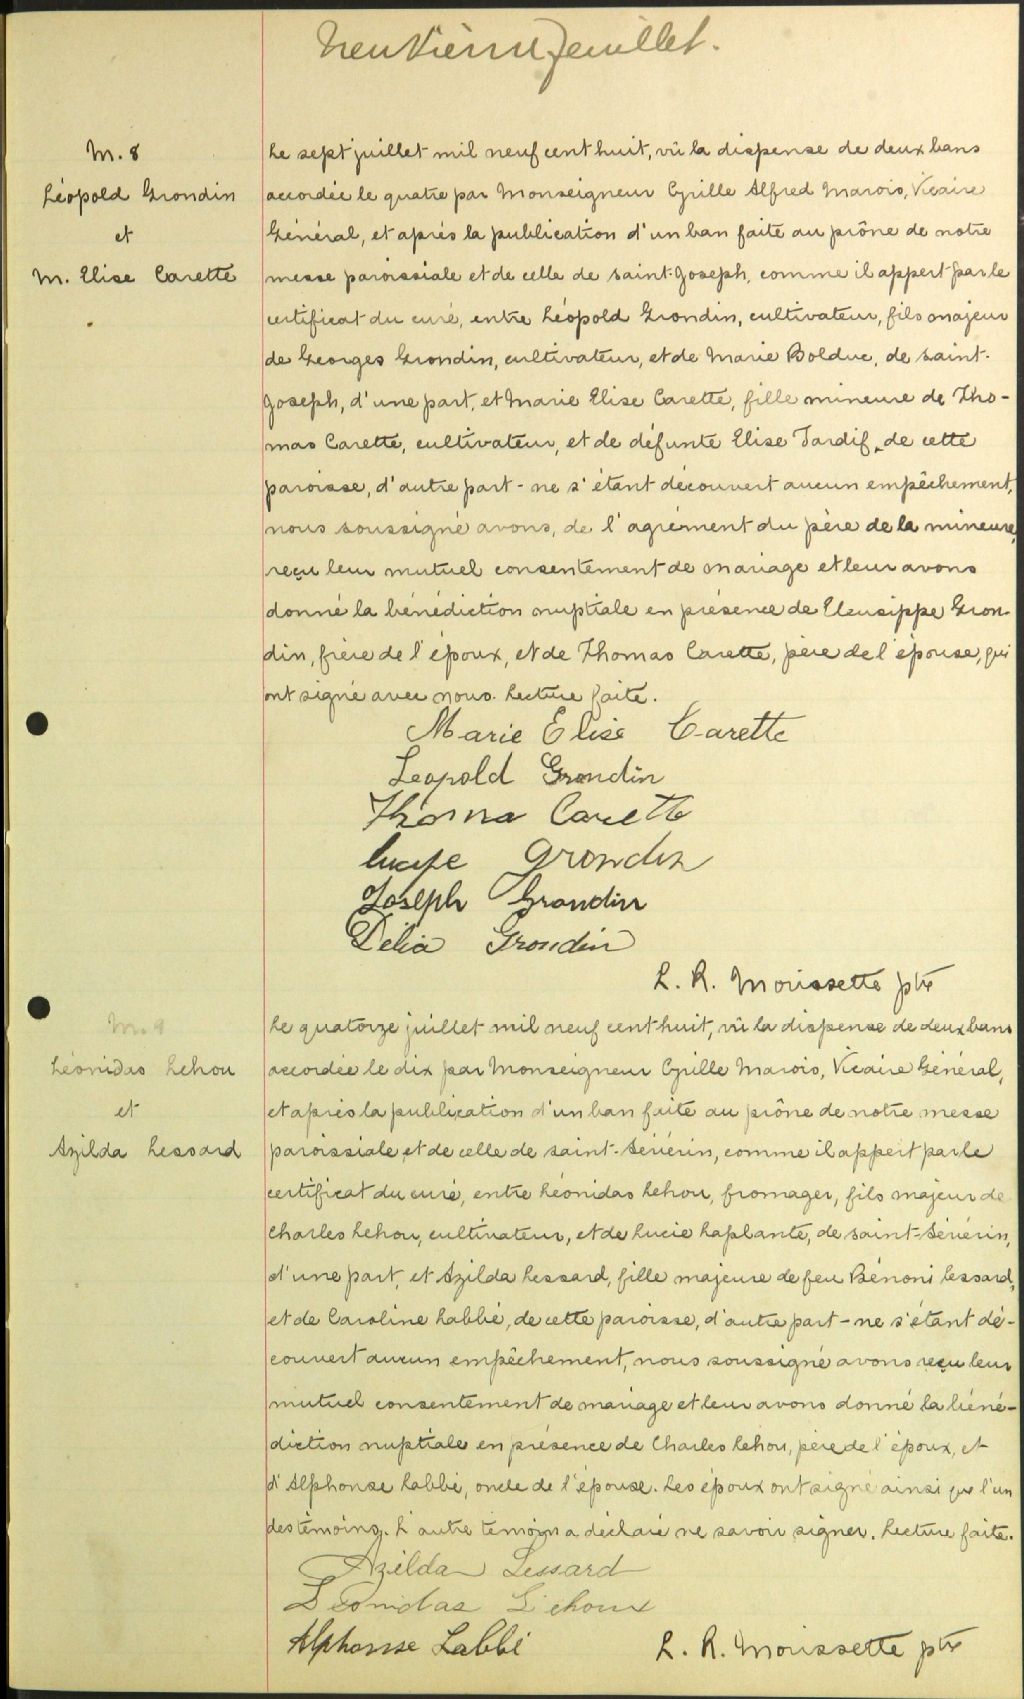 Neuvième feuillet.
M. 8
Léopold Grondin
et
M. Elise Carette
Le sept juillet mil neuf cent huit, vû la dispense de deux bans
accordée le quatre par Monseigneur Cyrille Alfred Marois, Vicaire
Général, et après la publication d'un ban faite au prône de notre
messe paroissiale et de celle de saint-Joseph, comme il appert par le
certificat du curé, entre Léopold Grondin, cultivateur, fils majeur
de Georges Grondin, cultivateur, et de Marie Bolduc, de saint-
Joseph, d'une part, et Marie Elise Carette, fille mineure de Tho-
mas Carette, cultivateur, et de défunte Elise Tardif, de cette
paroisse, d'autre part - ne s'étant découvert aucun empêchement,
nous soussigné avons, de l'agrément du père de la mineure,
reçu leur mutuel consentement de mariage et leur avons
donné la bénédiction nuptiale en présence de Eleusippe Gron-
din, frère de l'époux, et de Thomas Carette, père de l'épouse, qui
ont signé avec nous. Lecture faite.
Marie Elise Carette
Leopold Grondin
Thoma Carette
Grondin
Joseph Grondin
Délia Grondin
L. R. Morissette ptre
M. 9
Léonidas Lehou
et
Azilda Lessard
Le quatorze juillet mil neuf cent huit, vû la dispense de deux bans
accordée le dix par Monseigneur Cyrille Marois, Vicaire Général,
et après la publication d'un ban faite au prône de notre messe
paroissiale et de celle de saint-Sévérin, comme il appert par le
certificat du curé, entre Léonidas Lehou, fromager, fils majeur de
Charles Lehou, cultivateur, et de Lucie Laplante, de saint-Sévérin,
d'une part, et Azilda Lessard, fille majeure de feu Bénoni Lessard,
et de Caroline Labbé, de cette paroisse, d'autre part - ne s'étant dé-
couvert aucun empêchement, nous soussigné avons reçu leur
mutuel consentement de mariage et leur avons donné la béné-
diction nuptiale en présence de Charles Lehou, père de l'époux, et
d'Alphonse Labbé, oncle de l'épouse. Les époux ont signé ainsi que l'un
des témoins. L'autre témoin a déclaré ne savoir signer. Lecture faite.
Azilda Lessard
Leonidas Lehoux
Alphonse Labbé
L. R. Morissette ptre